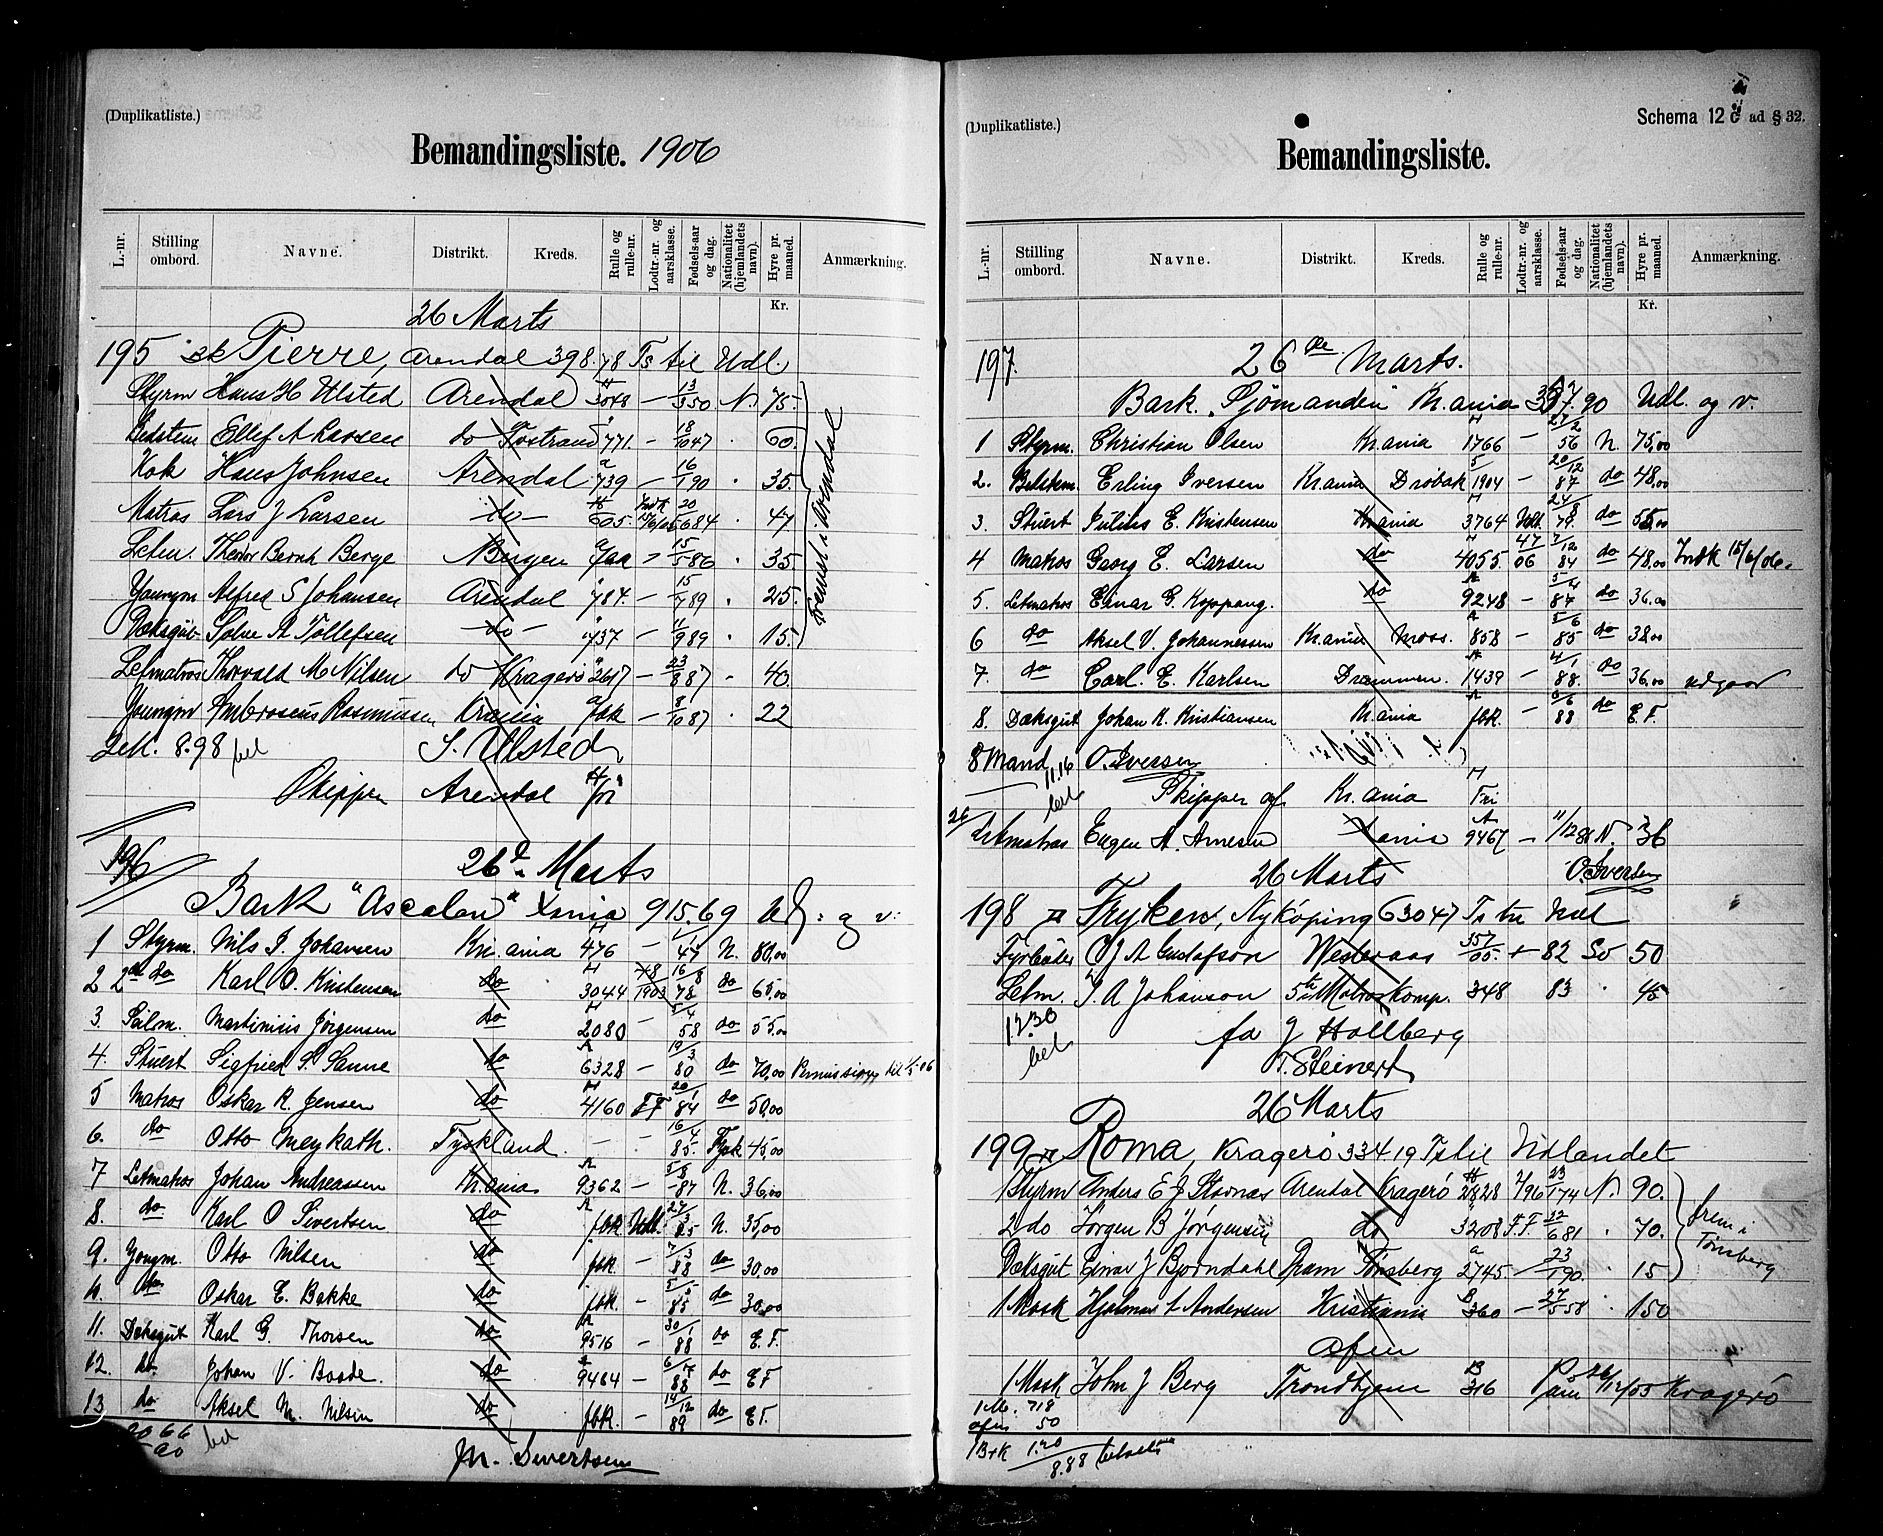 (Duplikatliste.)
Bemandingsliste. 1906
L.-nr. Stilling ombord. Navne. Distrikt. Kreds. Rulle og rulle-nr. Lodtr.-nr. og aarsklasse. Fødsels-aar og dag. Nationalitet (hjemlandets navn). Hyre pr. maaned. Anmærkning.
Kr.
26 Marts
195 Pierre, Arendal 398.78 Ts til Udl.
Styrm Hans H Ulsted Arendal 75.
Ellef A Larsen do 771. 60.
Kok Hans Johnsen Arendal 739 35.
Matros Lars J Larsen do 605. 47
Letm. Theodor Bernh Berge Bergen 35
Youngm Alfred S Johansen Arendal 784. 25.
Dæksgut Solve A Tollefsen do 737 15.
Letmatros Thorvald M Nilsen do Kragerø 2617 40.
Youngm Ambrosius Rasmussen Xania fbk 22
8.98 bet S. Ulsted
Skipper Arendal
196 26 Marts
Bark "Ascalon" Xania 915.69 Udl: og v:
1 Styrm. Nils J. Johansen Kr.ania 476 N. 80,00
2 2den do Karl O. Kristensen do 3044 1903 do 65,00
3. Seilm. Martinius Jørgensen do 2080 58 do 55,00
4. Stuert Sigfried S. Sanne do 6328 80 do 70,00
5 Matros Oskar R. Jensen do 4160 84 do 50,00
6. do Otto Meykath. Tyskland 85. Tysk 45,00
7 Letmatros Johan Andreassen Kr.ania 9362 87 N. 36,00
8. do Karl O Sivertsen do fbk. Udt. 85 N. 35,00
9. Yongm. Otto Nilsen do fbk. 88 do 30,00
do Oskar E. Bakke do fbk. 85 do 30,00
11. Dæksgut Karl G. Thorsen do 9516 88 do E.F.
12. do Johan V. Baade. do 9464 88 do EF
13 do Aksel M. Nilsen do fbk. 89 do EF.
bet
M. Sivertsen
(Duplikatliste.) Schema 12 c ad § 32.
Bemandingsliste.
L.-nr. Stilling ombord. Navne. Distrikt. Kreds. Rulle og rulle-nr. Lodtr.-nr. og aarsklasse. Fødsels-aar og dag. Nationalitet (hjemlandets navn). Hyre pr. maaned. Anmærkning.
Kr.
197. 26de Marts.
Bark. "Sjømanden" Kr.ania Udl. og v.
1 Styrm. Christian Olsen Kr.ania 1766 56 N. 75,00
2. Erling Iversen Kr.ania Drøbak 1904 87 do 48,00
3. Stuert Julius E. Kristensen Kr.ania 3764 Udt. 79. do 55,00
4 Matros Georg E. Larsen do 4055. 84 do 48,00 Indk 15/6/06.
5. Letmatros Einar G. Koppang. do 9248 87 do 36.00
6 do Aksel V. Johannessen Kr.ania Moss. 858 85 do 38,00
7. do Carl. E. Karlsen Drammen. 1439 88. do 36,00 udgaar
8. Dæksgut Johan K. Kristiansen Kr.ania fbk. 88 do E.F.
8 Mand O. Iversen
11.16 bet
Skipper af Kr.ania Fri
Letmatros Eugen A. Arnesen Xania 9467 N. 36
26 Marts O. Iversen
198 Fryken, Nykøping 630 47 Ts til Udl
Fyrbøder O J A Gustafson Westeraas 82 Sv 50
Letm. J. A Johanson 5te Matroskomp. 348 83 45
12.30 bet
fa J Hallberg
T. Steinert
26 Marts
199 Roma, Kragerø 334 19 Ts til Udlandet
1 Styrm Anders E J Stavnæs Arendal Kragerø 2828 N. 90.
2 do Jørgen B Jørgensen do 3208 F.F. 70.
Dæksgut Einar J Bjørndahl Dram Tønsberg 2745. 15
frem i Tønsberg
1 Mask Hjalmar L Andersen Kristiania 360 150
afm
1 Mask John J Berg Trondhjem 316 Kragerø
1 M. 718
afm 50
B+K 1.20
8.88 betalt